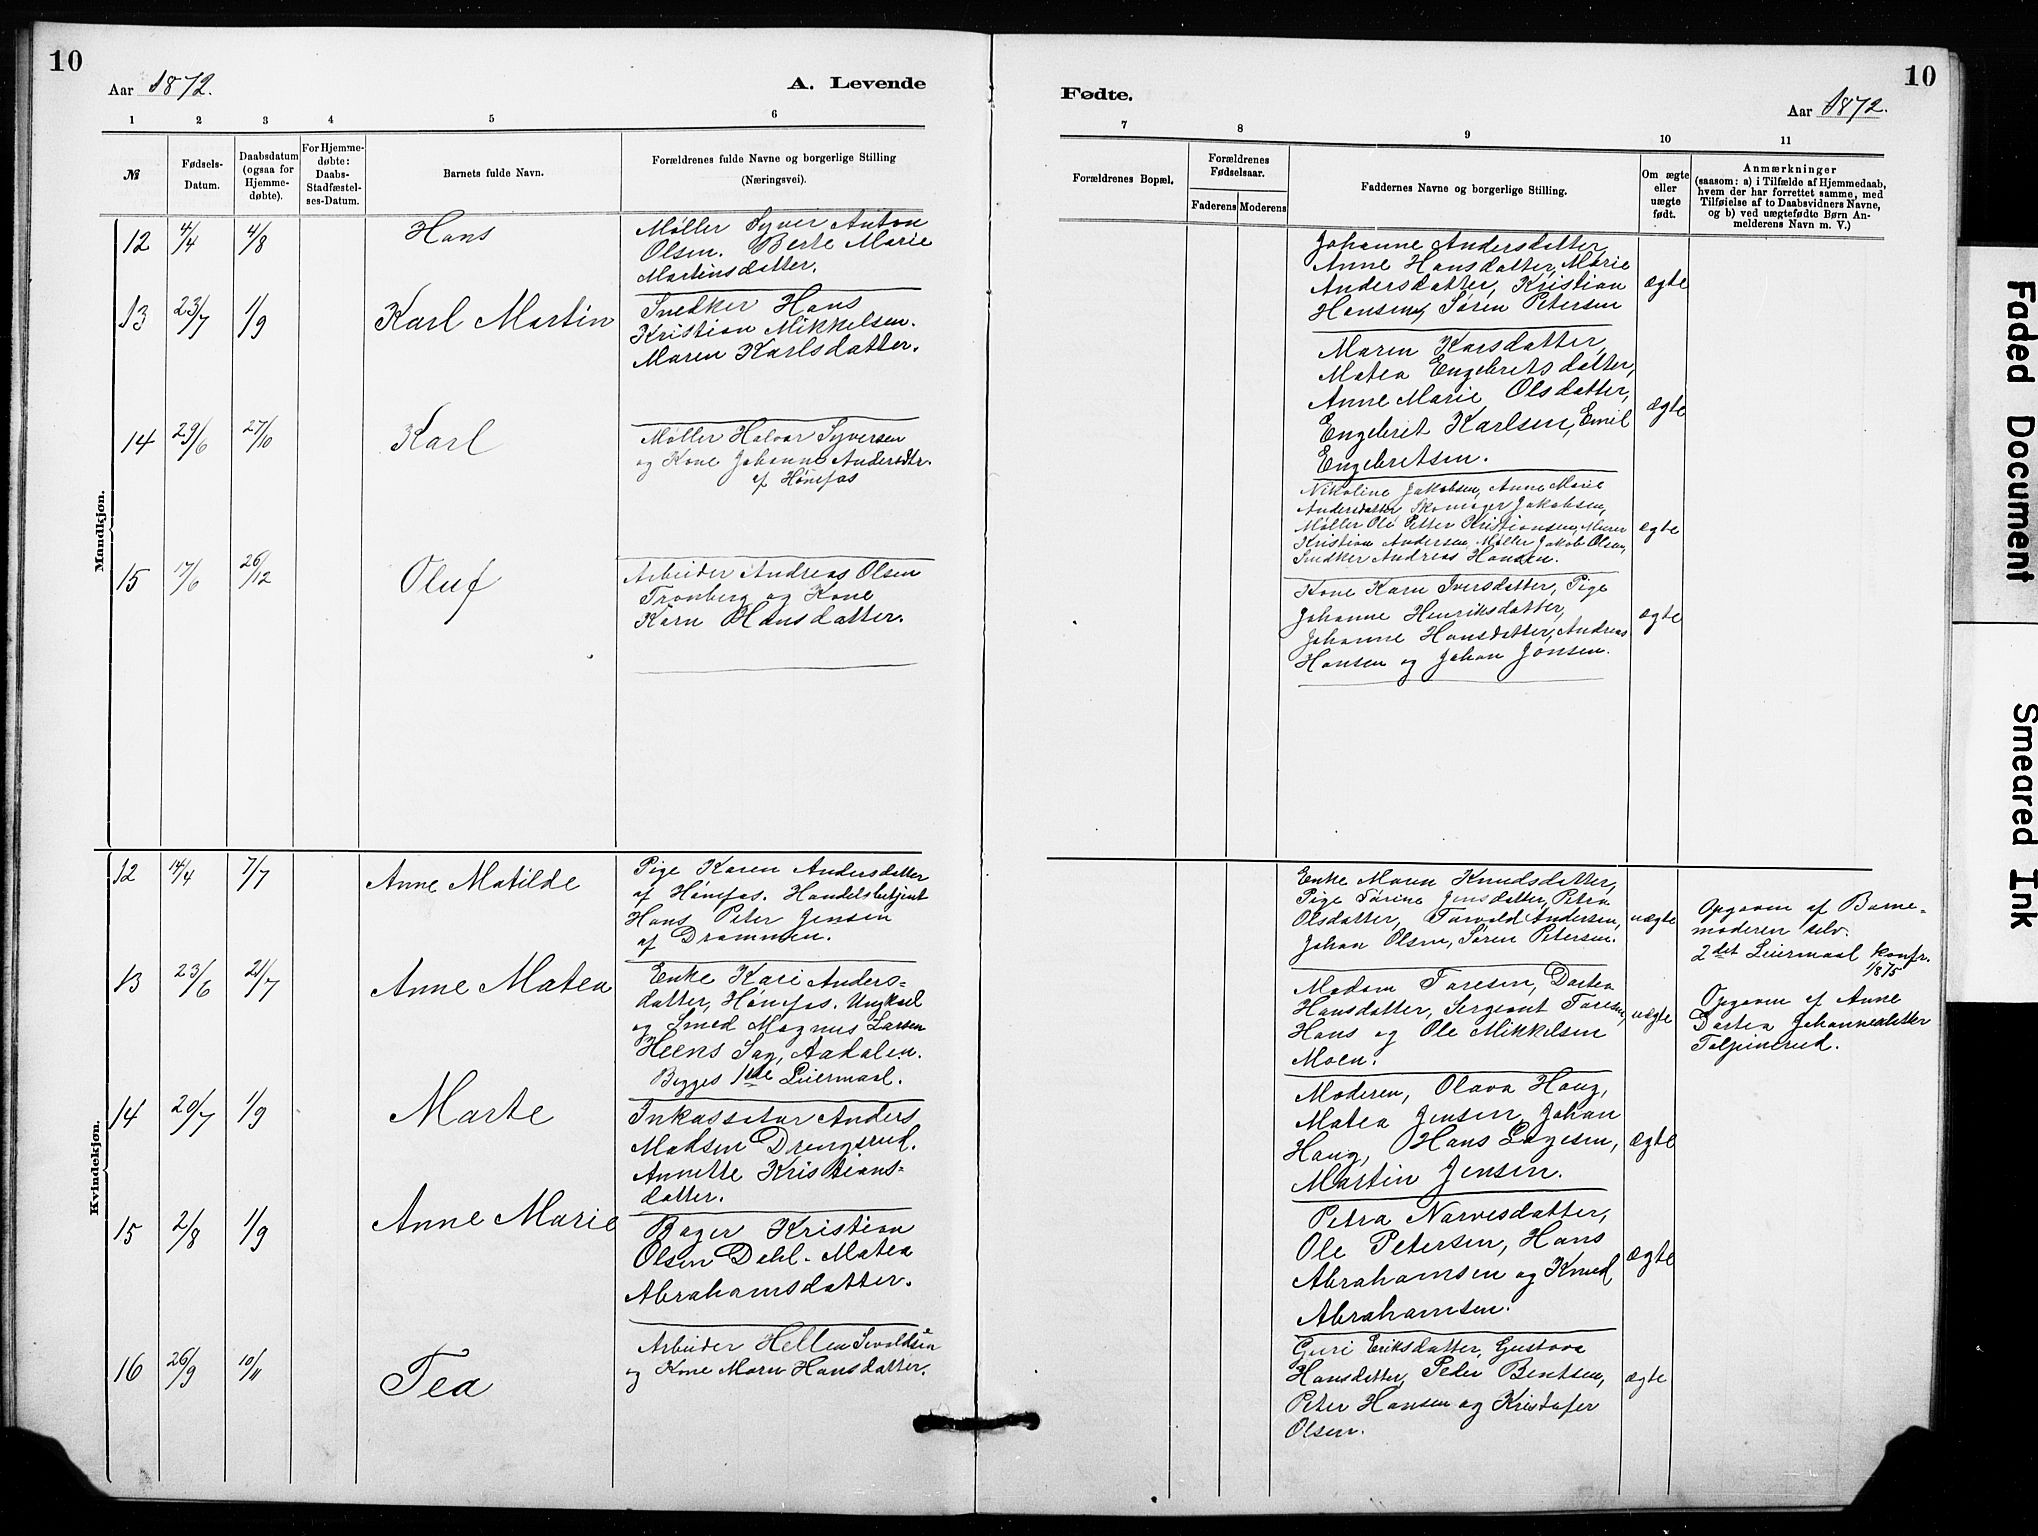 10
Aar 1872.
A. Levende
1 2 3 4 5 6
№
Fødsels-
Datum.
Daabsdatum
(ogsaa for
Hjemme-
døbte).
For Hjemme-
døbte:
Daabs-
Stadfæstel-
ses-Datum.
Barnets fulde Navn.
Forældrenes fulde Navne og borgerlige Stilling
(Næringsvei).
Mandkjøn.
12 4/4 4/8 Hans
Møller Syver Anton
Olsen. Berte Marie
Martinsdatter.
13 23/7 1/9 Karl Martin
Snedker Hans
Kristian Mikkelsen.
Maren Karlsdatter.
14 29/6 27/10 Karl
Møller Halvor Syversen
og Kone Johanne Andersdtr.
af Hønefos
15 17/6 26/12 Oluf
Arbeider Andreas Olsen
Tronberg og Kone
Karn Hansdatter.
Kvindekjøn.
12 14/4 7/7 Anne Matilde
Pige Karen Andersdatter
af Hønefos. Handelsbetjent
Hans Peter Jensen
af Drammen.
13 23/6 21/7 Anne Matea
Enke Kari Anders-
datter, Hønefos. Ungkarl
og Smed Magnus Larsen
Heens Sag, Aadalen.
Begges 1ste Leiermaal.
14 20/7 1/9 Marte
Inkassator Anders
Madsen Drengsrud.
Annette Kristians-
datter.
15 2/8 1/9 Anne Marie
Bager Kristian
Olsen Dahl. Matea
Abrahamsdatter.
16 26/9 10/11 Tea
Arbeider Hellen Sevaldsen
og Kone Marn Hansdatter.
10
Fødte.
Aar 1872.
7 8 9 10 11
Forældrenes Bopæl.
Forældrenes
Fødselsaar.
Faderens Moderens
Faddernes Navne og borgerlige Stilling.
Om ægte
eller
uægte
født.
Anmærkninger
(saasom: a) i Tilfælde af Hjemmedaab,
hvem der har forrettet samme, med
Tilføielse af to Daabsvidners Navne,
og b) ved uægtefødte Børn An-
melderens Navn m. V.)
Johanne Andersdatter,
Anne Hansdatter, Marie
Andersdatter, Kristian
Hansen, Søren Petersen
ægte
Maren Karsdatter,
Matea Engebretsdatter,
Anne Marie Olsdatter,
Engebret Karlsen, Emil
Engebretsen.
ægte
Nikoline Jakobsen, Anne Marie
Andersdatter Skomager Jakobsen,
Møller Ole Petter Kristiansen, Murer
Kristian Andersen, Møller Jakob Olsen,
Snedker Andreas Hansen.
ægte
Kone Karn Iversdatter, Pige
Johanne Henriksdatter,
Johanne Hansdatter, Andreas
Hansen og Johan Jonsen.
ægte
Enke Maren Knudsdatter,
Pige Tørine Jensdatter, Petra
Olsdatter, Torvald Andersen,
Johan Olsen, Søren Petersen.
uægte
Opgaven af Barne-
moderen selv.
2det Leiermaal konfr.
1/8 75
Madam Toresen, Dortea
Hansdatter, Sergeant Toresen,
Hans og Ole Mikkelsen
Moen.
uægte
Opgaven af Anne
Dortea Johannesdatter
Tolpinrud.
Moderen, Olava Haug,
Matea Jensen, Johan
Haug, Hans Lagesen,
Martin Jensen.
ægte
Petra Narvesdatter,
Ole Petersen, Hans
Abrahamsen og Knud
Abrahamsen.
ægte
Guri Eriksdatter, Gustava
Hansdatter, Peder Bentsen,
Peter Hansen og Kristofer
Olsen.
ægte
Faded Document
Smeared Ink